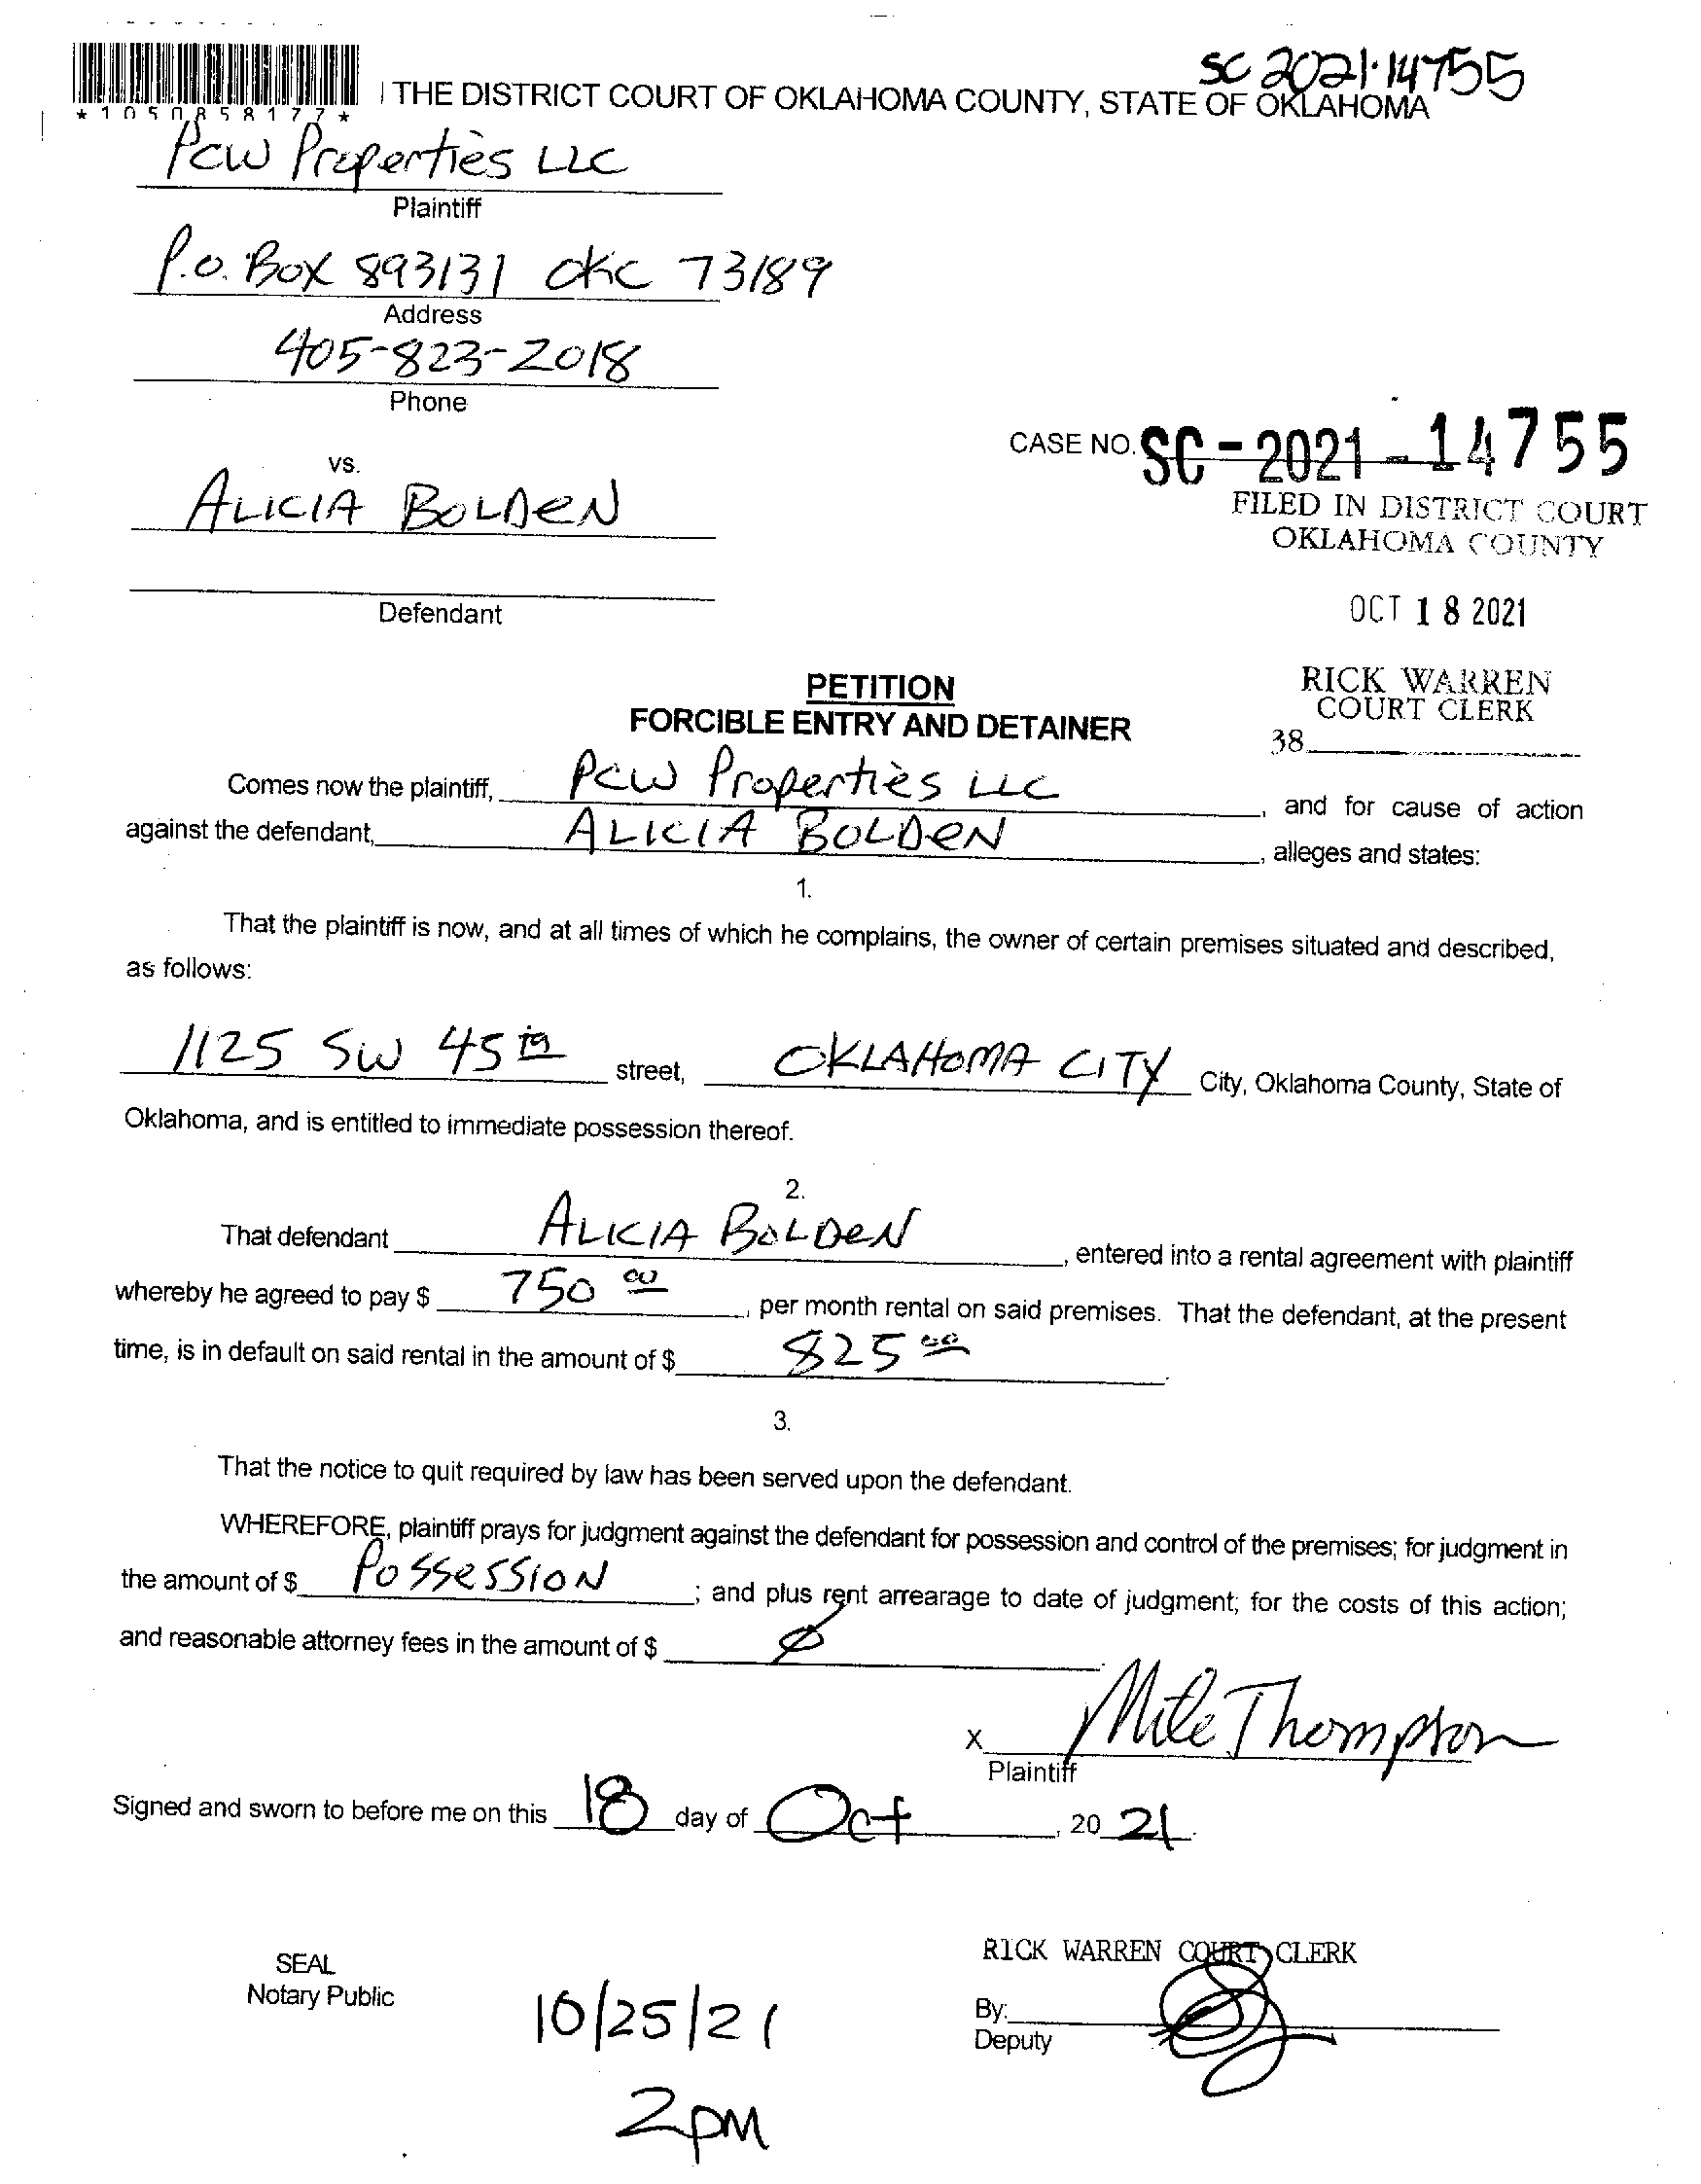 SC 2021-14755
THE DISTRICT COURT OF OKLAHOMA COUNTY, STATE OF OKLAHOMA
* 1 0 5 0 8 5 8 1 7 7 *
PCW Properties LLC
Plaintiff
P.O. Box 893131 OKC 73189
Address
405-823-2018
Phone
CASE NO. SC-2021-14755
vs.
ALICIA BOLDEN
FILED IN DISTRICT COURT
OKLAHOMA COUNTY
Defendant
OCT 18 2021
PETITION
FORCIBLE ENTRY AND DETAINER
RICK WARREN
COURT CLERK
38
Comes now the plaintiff, PCW Properties LLC, and for cause of action
against the defendant, ALICIA BOLDEN, alleges and states:
1.
That the plaintiff is now, and at all times of which he complains, the owner of certain premises situated and described,
as follows:
1125 SW 45th street, OKLAHOMA CITY City, Oklahoma County, State of
Oklahoma, and is entitled to immediate possession thereof.
2.
That defendant ALICIA BOLDEN, entered into a rental agreement with plaintiff
whereby he agreed to pay $ 750 00, per month rental on said premises. That the defendant, at the present
time, is in default on said rental in the amount of $ 825 00.
3.
That the notice to quit required by law has been served upon the defendant.
WHEREFORE, plaintiff prays for judgment against the defendant for possession and control of the premises; for judgment in
the amount of $ POSSESSION; and plus rent arrearage to date of judgment; for the costs of this action;
and reasonable attorney fees in the amount of $ Ø.
X Mike Thompson
Plaintiff
Signed and sworn to before me on this 18 day of Oct, 20 21.
RICK WARREN COURT CLERK
SEAL
Notary Public
10/25/21
By:
Deputy
2PM